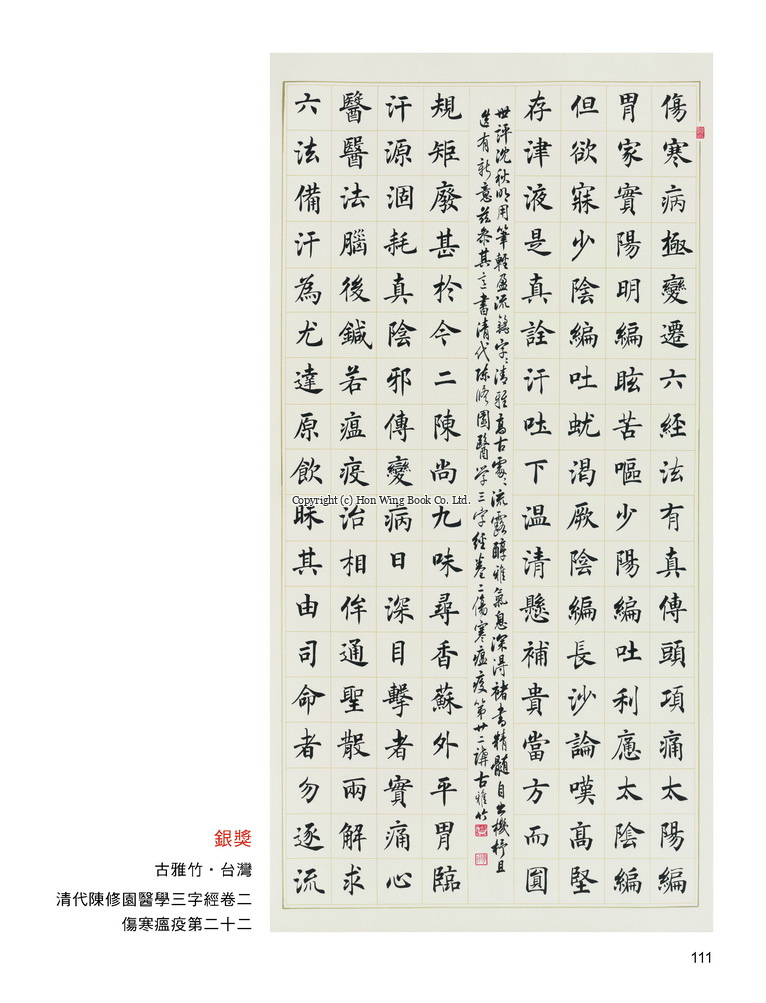 傷寒病極變遷六經法有真傳頭項痛太陽編
胃家實陽明編眩苦嘔少陽編吐利應太陰編
但欲寐少陰編吐蚘渴厥陰編長沙論嘆高堅
存津液是真詮汗吐下温清懸補貴當方而圓
世評沈秋明用筆輕盈流字字清雅高古處處流露醇雅氣息深得褚書精髓自出機杼且
有新意茲參其意書清代陳修園醫学三字經卷二傷寒瘟疫第廿二古雅竹
規矩廢甚於今二陳尚九味尋香蘇外平胃臨
汗源涸耗真陰邪傳變病日深目擊者實痛心
醫醫法腦後鍼若瘟疫治相侔通聖散兩解求
六法備汗為尤達原飲昧其由司命者勿逐流
Copyright (c) Hon Wing Book Co. Ltd.
銀獎
古雅竹・台灣
清代陳修園醫學三字經卷二
傷寒瘟疫第二十二
111